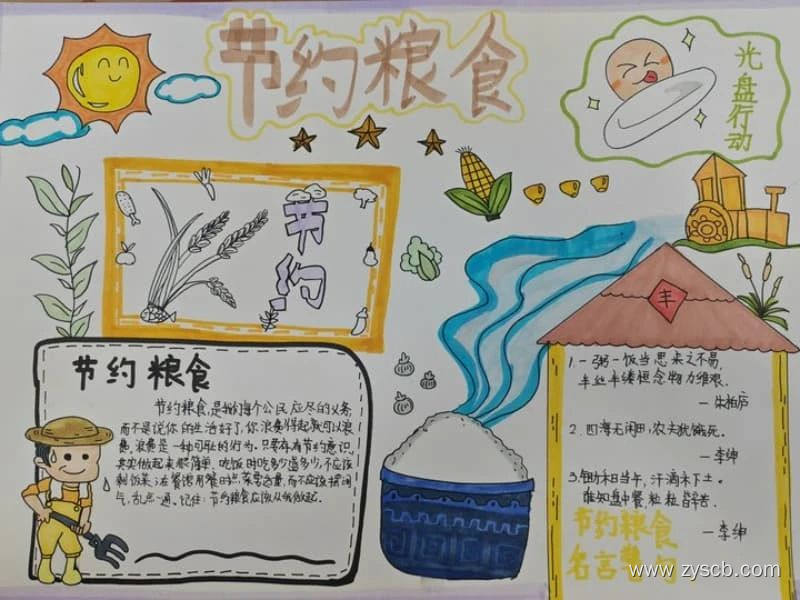 节约粮食
光盘行动
节约
丰
节约粮食
节约粮食,是我们每个公民应尽的义务,
而不是说你的生活好了,你浪费得起就可以浪
费,浪费是一种可耻的行为。只要存有节约意识,
其实做起来很简单,吃饭时吃多少盛多少,不应该
剩饭菜;在餐馆用餐时点菜要适量,而不应该摆阔
气,乱点一通。记住:节约粮食应该从我做起。
1.一粥一饭当思来之不易,
半丝半缕恒念物力维艰。
—朱柏庐
2.四海无闲田,农夫犹饿死。
—李绅
3.锄禾日当午,汗滴禾下土。
谁知盘中餐,粒粒皆辛苦。
—李绅
节约粮食
名言警句
www.zyscb.com